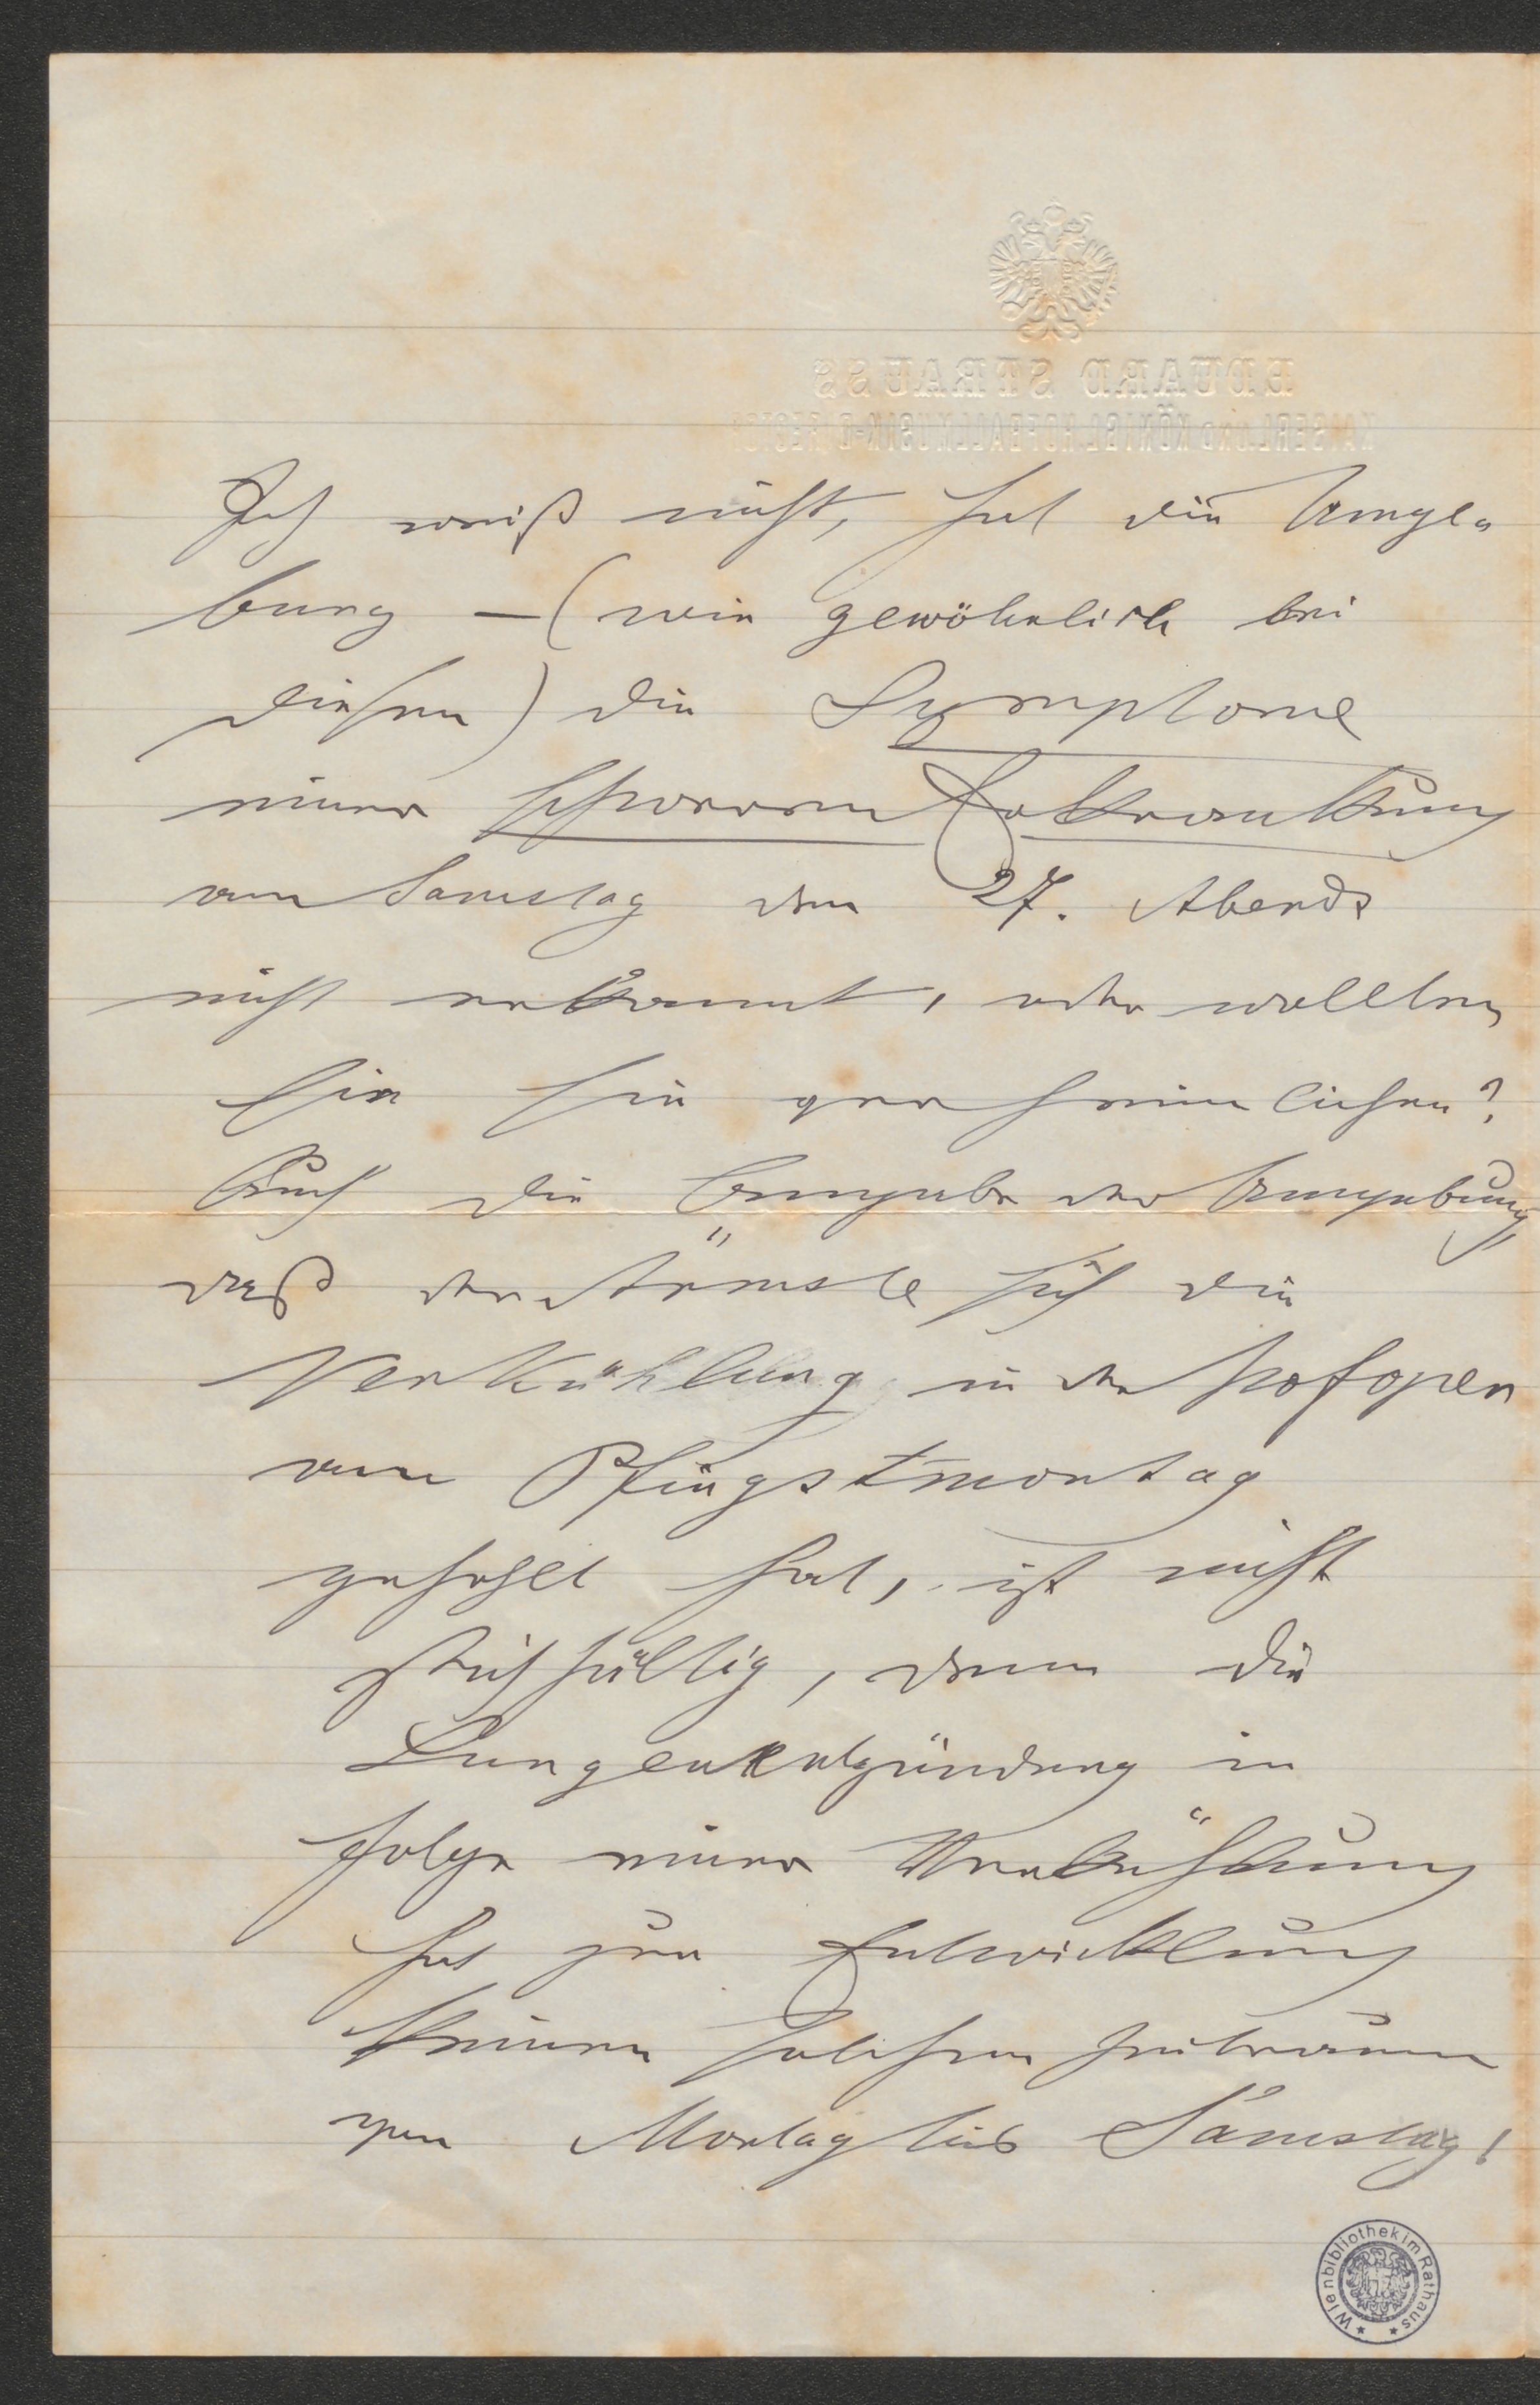 EDUARD STRAUSS
KAISERL. UND KÖNIGL. HOFBALLMUSIK-DIRECTOR
Ich weiß nicht, hat die Umge-
bung – (wie gewöhnlich bei
diesen) die Symptome
einer schweren Erkrankung
am Samstag den 27. Abends
nicht erkannt, oder wollten
Sie sie verheimlichen?
Auch die Angabe der Umgebung
daß der Ärmste sich die
Verkühlung in der Hofoper
am Pfingstmontag
geholt hat, ist nicht
stichhältig, denn die
Lungenentzündung in
Folge einer Verkühlung
hat zur Entwicklung
keinen solchen Zeitraum
von Montag bis Samstag!
Wienbibliothek im Rathaus